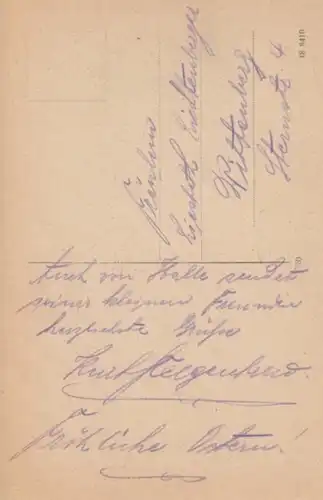 Fräulein
Liesbeth
Wittenberg
Sternstr. 4
Auch von Halle sendet
seiner kleinen Freundin
herzlichste Grüße
Kurt
Fröhliche Ostern!